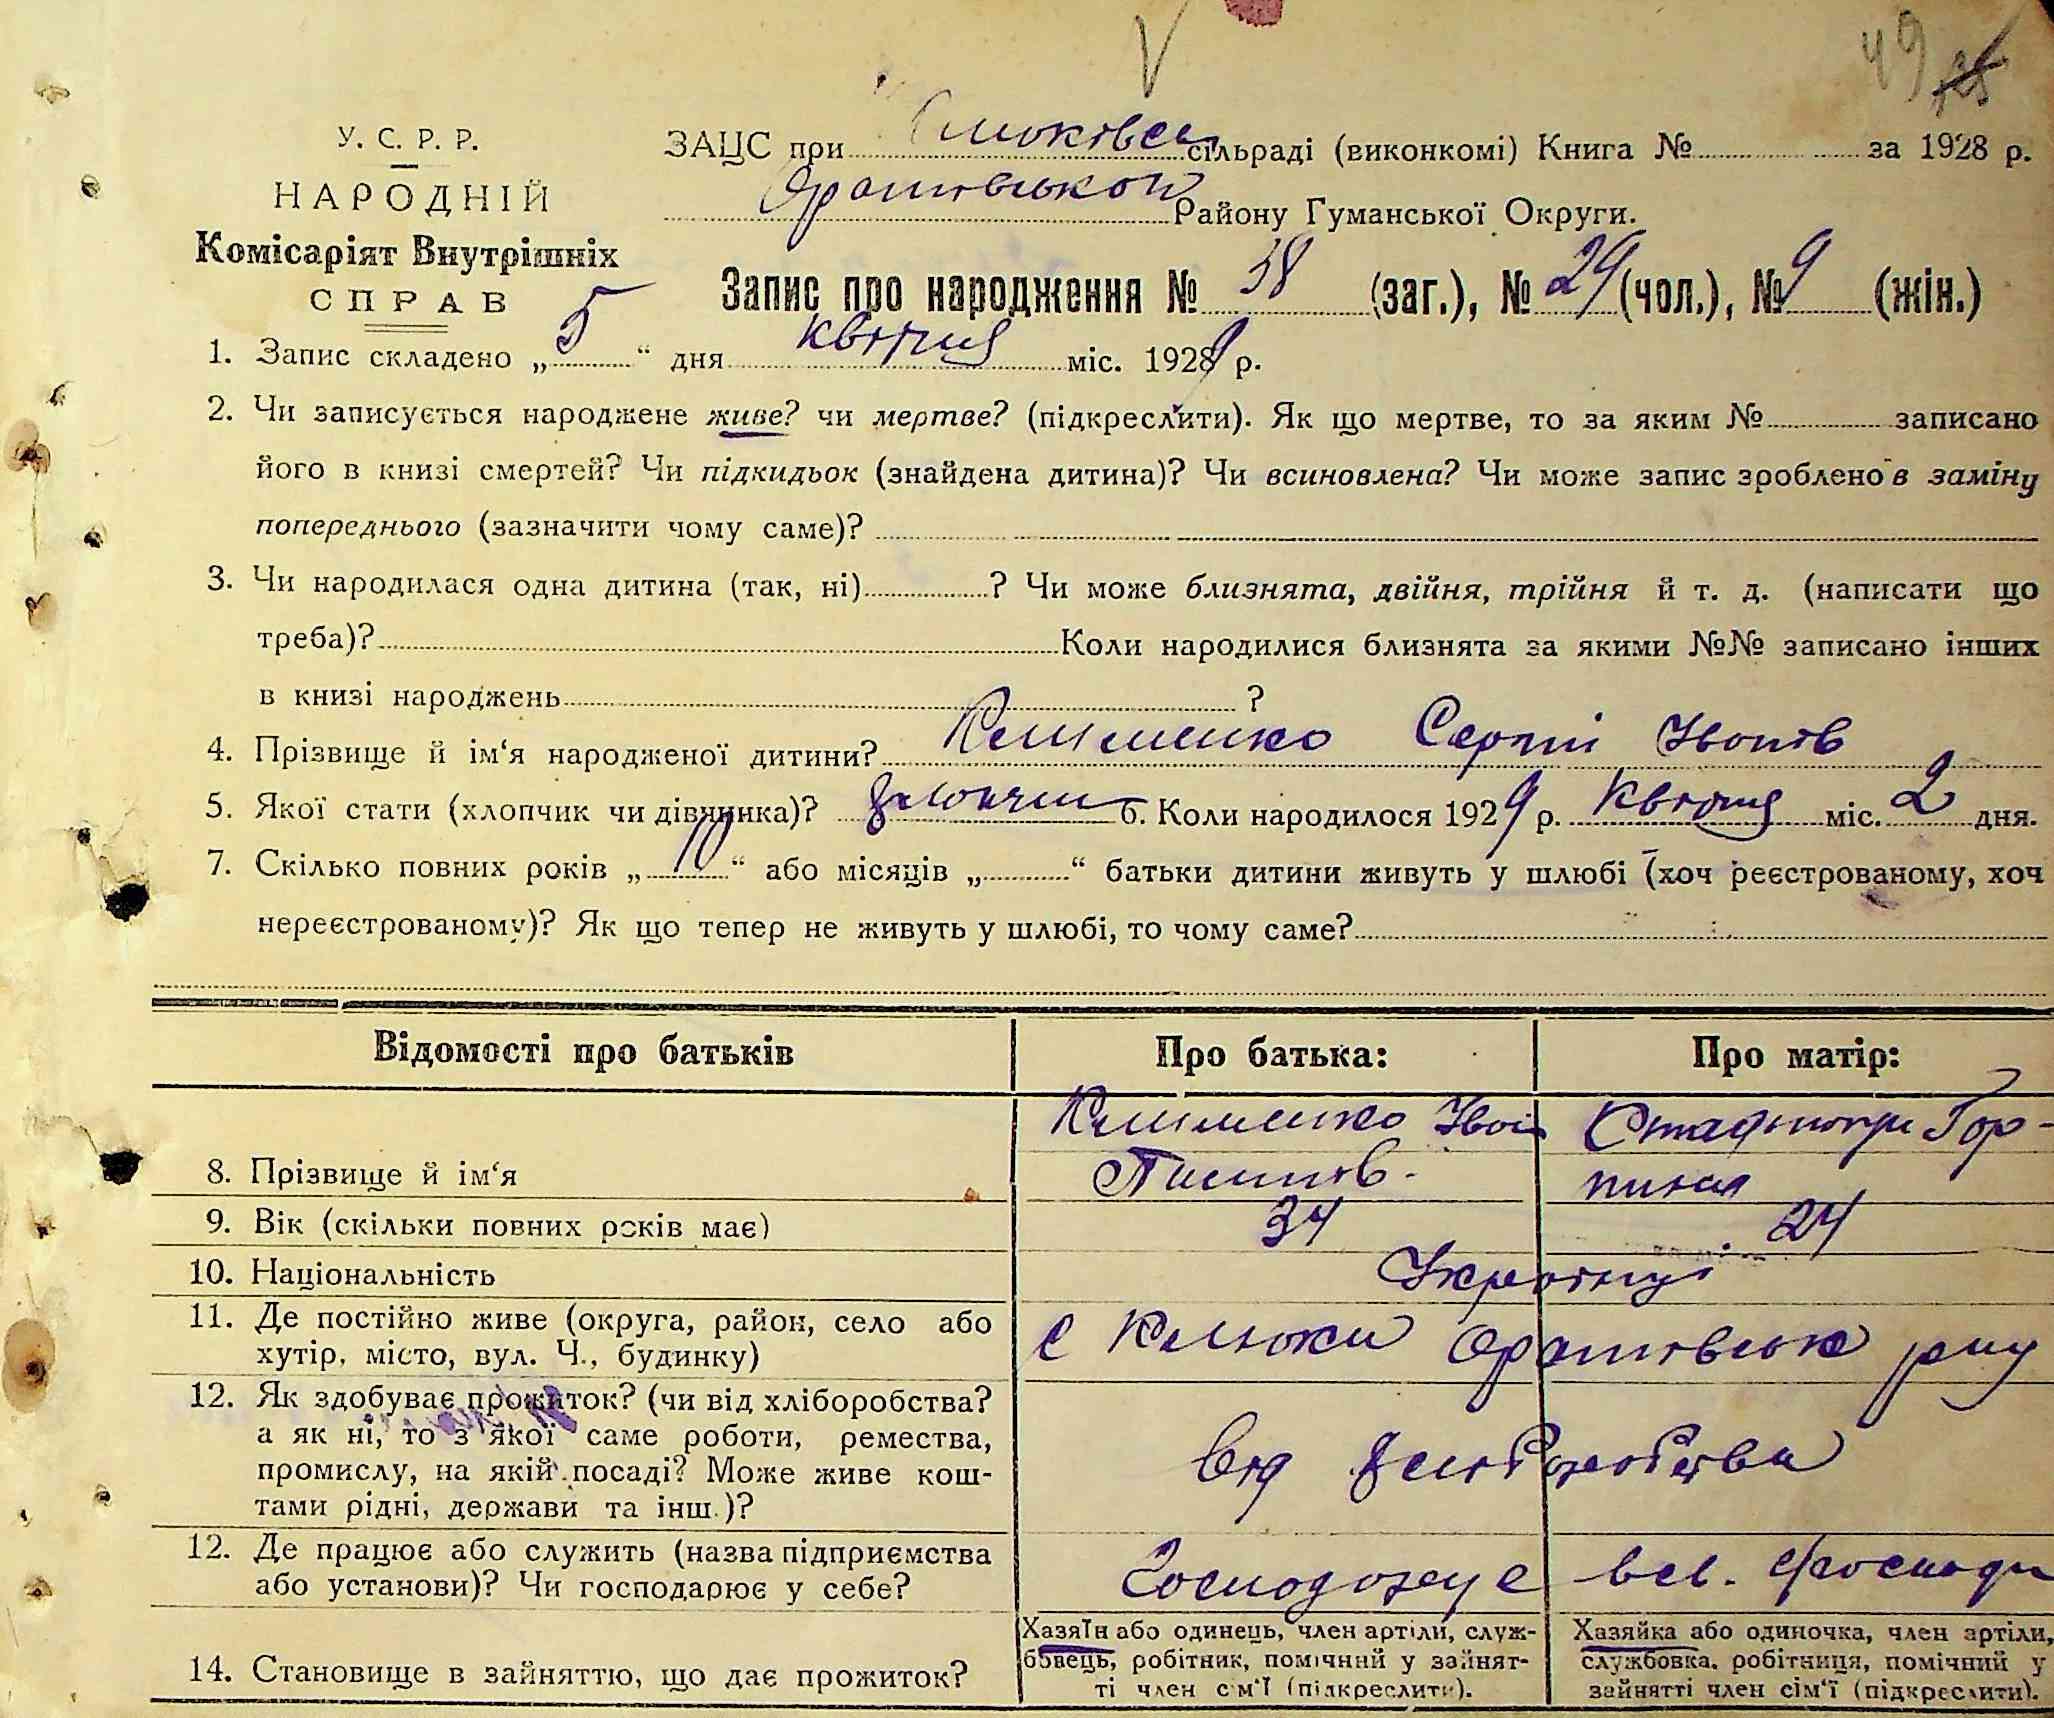 49 125
У. С. Р. Р.
НАРОДНІЙ
Комісаріят Внутрішніх
СПРАВ
ЗАЦС при сільраді (виконкомі) Книга № за 1928 р.
Оратівської Району Гуманської Округи.
Запис про народження № 38 (заг.), № 29 (чол.), № 9 (жін.)
1. Запис складено „ 5 “ дня квітня міс. 1929 р.
2. Чи записується народжене живе? чи мертве? (підкреслити). Як що мертве, то за яким № записано
його в книзі смертей? Чи підкидьок (знайдена дитина)? Чи всиновлена? Чи може запис зроблено в заміну
попереднього (зазначити чому саме)?
3. Чи народилася одна дитина (так, ні) ? Чи може близнята, двійня, трійня й т. д. (написати що
треба)? Коли народилися близнята за якими №№ записано інших
в книзі народжень ?
4. Прізвище й ім‘я народженої дитини? Клименко Сергій Іванів
5. Якої стати (хлопчик чи дівчинка)? хлопчик 6. Коли народилося 1929 р. Квітня міс. 2 дня.
7. Скілько повних років „ 10 “ або місяців „ “ батьки дитини живуть у шлюбі (хоч реєстрованому, хоч
нереєстрованому)? Як що тепер не живуть у шлюбі, то чому саме?
Відомості про батьків Про батька: Про матір:
Клименко Іван Гор-
8. Прізвище й ім‘я пина
9. Вік (скільки повних років має) 34 24
10. Національність Українці
11. Де постійно живе (округа, район, село або
хутір, місто, вул. Ч., будинку) с Клюки Оратівськ рну
12. Як здобуває прожиток? (чи від хліборобства?
а як ні, то з якої саме роботи, ремества,
промислу, на якій посаді? Може живе кош-
тами рідні, держави та інш.)? Від хліборобства
12. Де працює або служить (назва підприємства
або установи)? Чи господарює у себе? Господарує в св. господ
14. Становище в зайняттю, що дає прожиток?
Хазяїн або одинець, член артіли, служ-
бовець, робітник, помічний у зайнят-
ті член сім‘ї (підкреслити).
Хазяйка або одиночка, член артіли,
службовка, робітниця, помічний у
зайнятті член сім‘ї (підкреслити).